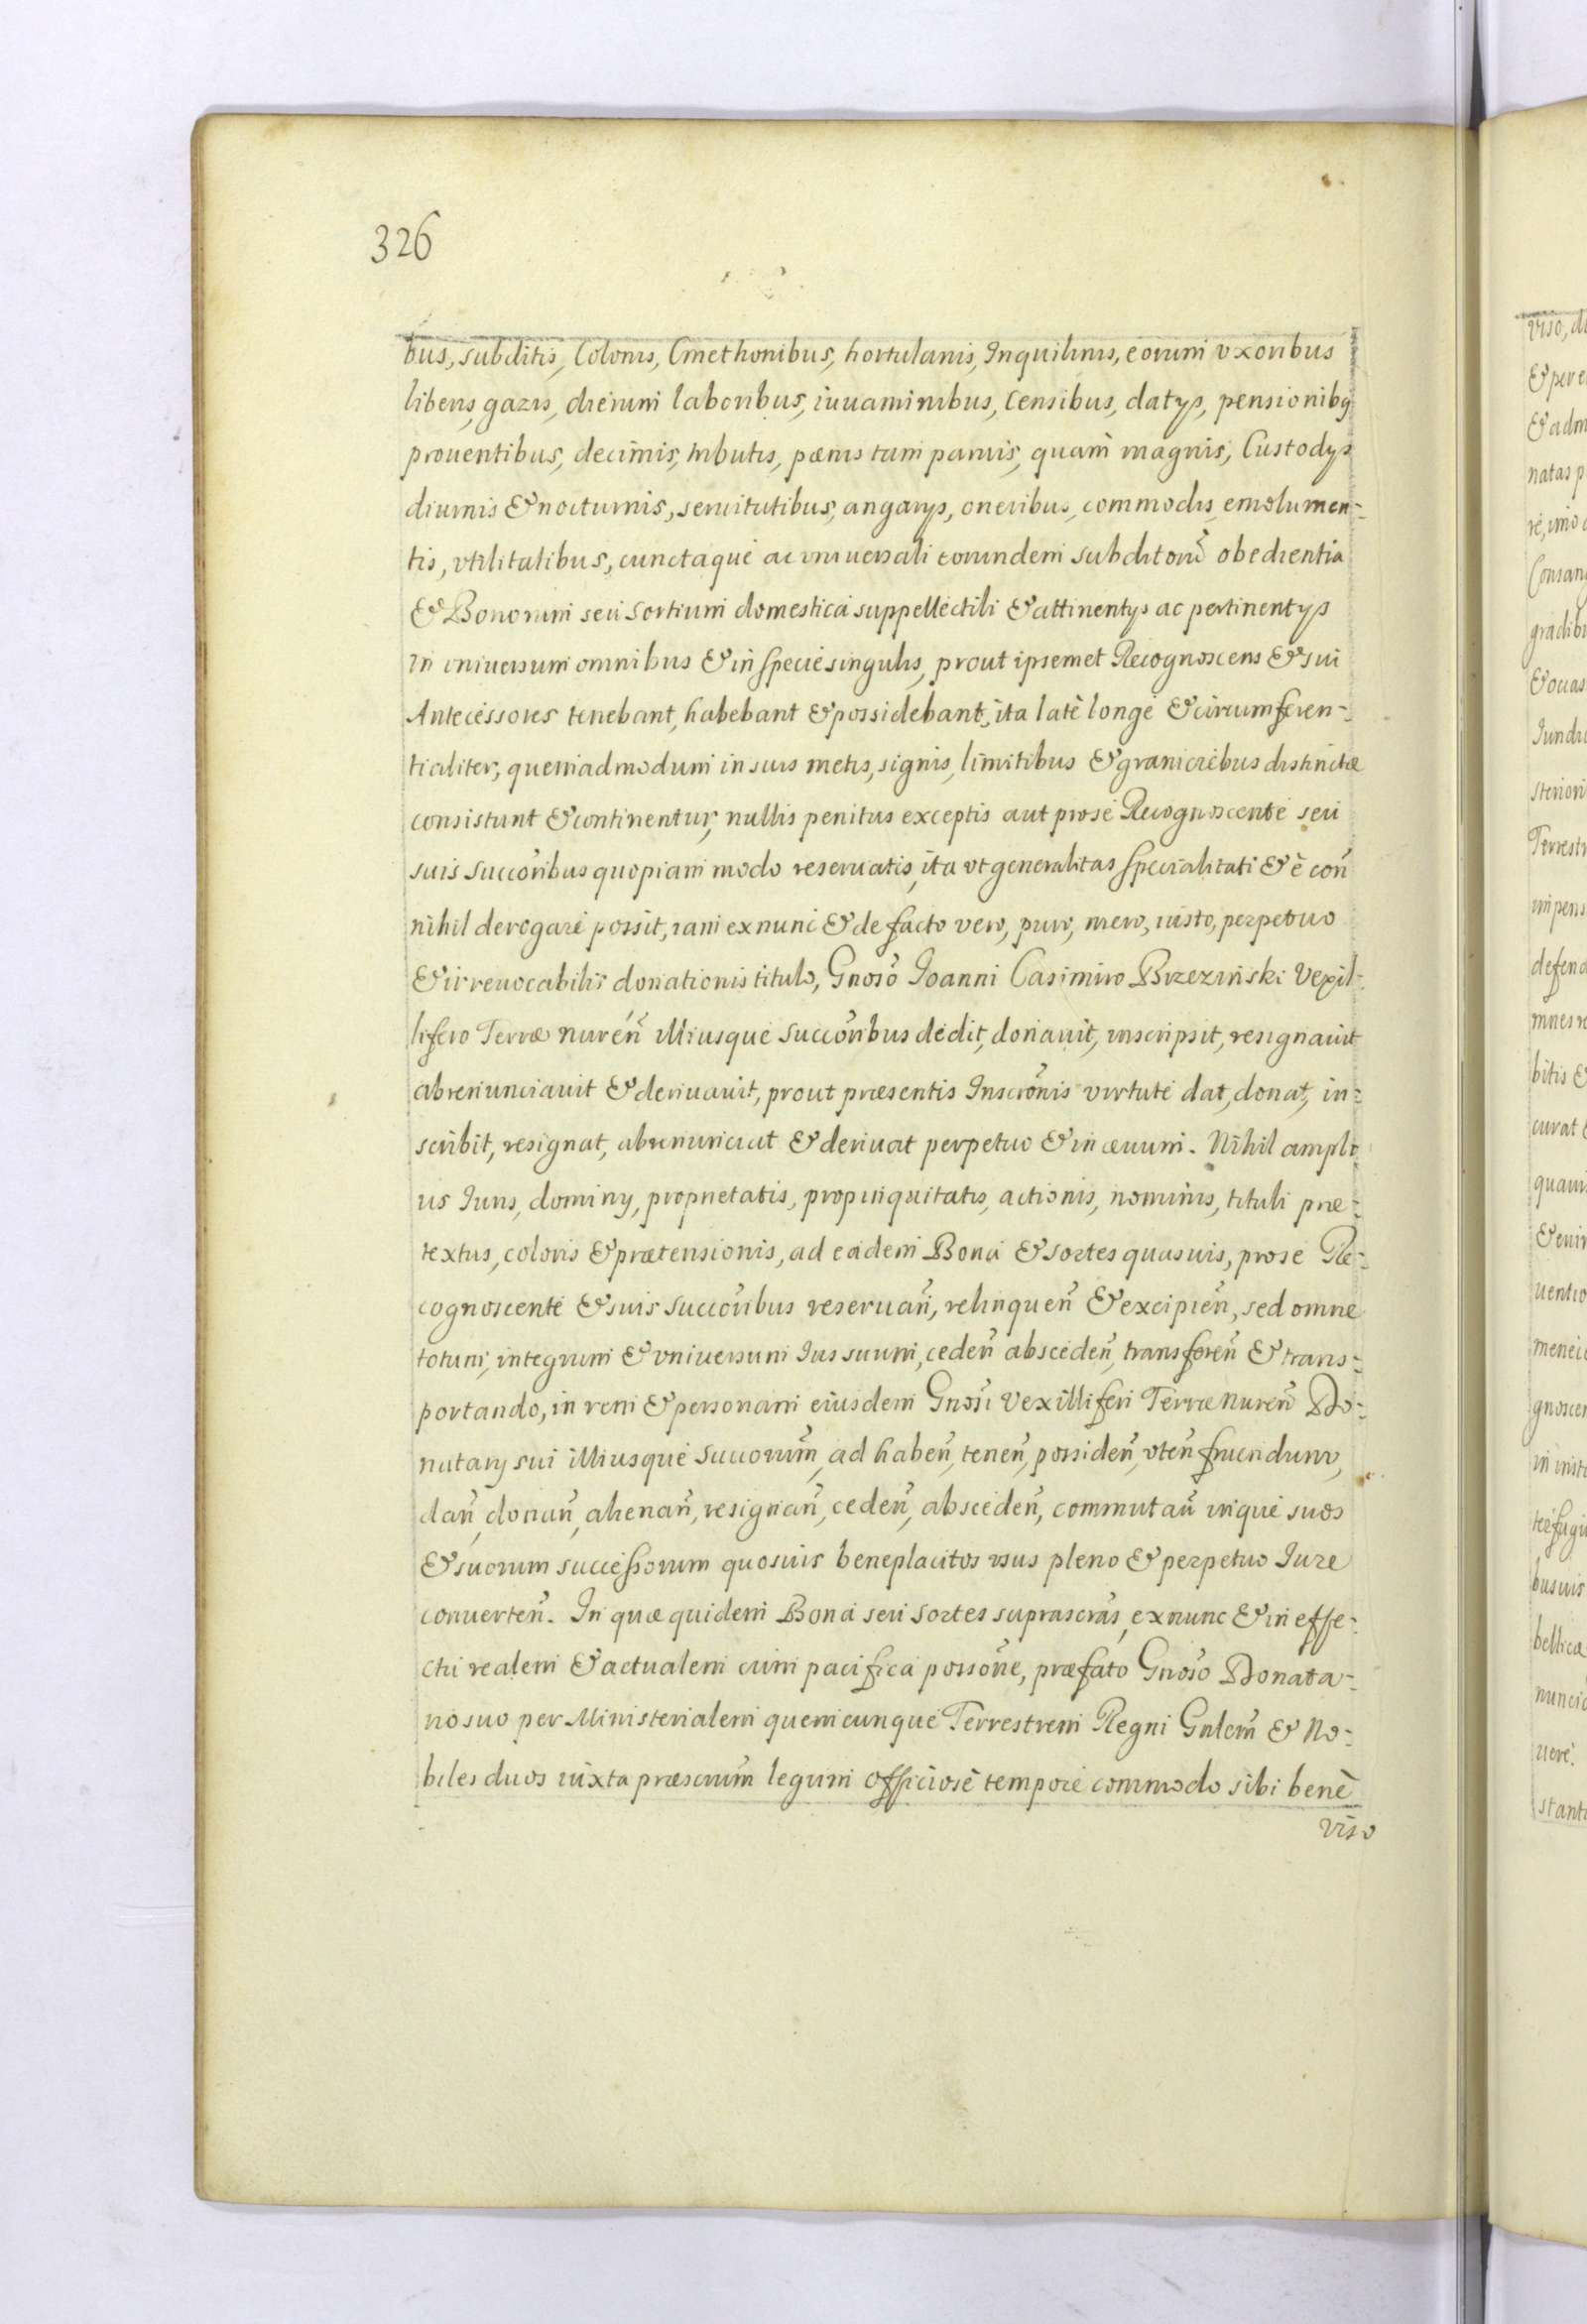 326
bus, subditis, Colonis, Cmethonibus, hortulanis, Inquilinis, eorum vxoribus
liberis, gazis, dierum laboribus, iuuaminibus, Censibus, datys, pensionibq
prouentibus, decimis, tributis, pænis tam paruis, quam magnis, Custodys
diurnis & nocturnis, seruitutibus, angarys, oneribus, commodis, emolumen=
tis, vtilitatibus, cunctaque ac vniuersali eorundem subditorũ obedientia
& Bonorum seu sortium domestica suppellectili & attinentys ac pertinentys
in vniuersum omnibus & in specie singulis, prout ipsemet Recognoscens & sui
Antecessores tenebant, habebant & possidebant, ita latè longè & circumferen=
tialiter, quemadmodum in suis metis, signis, limitibus & graniciebus distinctæ
consistunt & continentur, nullis penitus exceptis aut pro se Recognoscente seu
suis succõribus quopiam modo reseruatis, ita vt generalitas specialitati & è coñ
nihil derogare possit, iam ex nunc & de facto vero, puro, mero, iusto, perpetuo
& irreuocabilis donationis titulo, Gnoso Ioanni Casimiro Brzezinski Vexil=
lifero Terræ nureñ illiusque succõribus dedit, donauit, inscripsit, resignauit
abrenunciauit & deriuauit, prout præsentis Inscrõnis virtute dat, donat, in=
scribit, resignat, abrenunciat & deriuat perpetuo & in æuum. Nihil ampli
us Iuris, dominy, proprietatis, propinquitatis, actionis, nominis, tituli præ=
textus, coloris & prætensionis, ad eadem Bona & sortes quasuis, pro se Re=
cognoscente & suis succõribus reseruañ, relinqueñ & excipieñ, sed omne
totum, integrum & vniuersum Ius suum, cedeñ abscedeñ, transfereñ & trans=
portando, in rem & personam eiusdem Gnosi Vexilliferi Terræ nureñ Do=
natary sui illiusque succorum̃, ad habeñ, teneñ, possideñ, vteñ fruendum,
dañ, donañ, alienañ, resignañ, cedeñ, abscedeñ, commutañ inque suos
& suorum successorum quosuis beneplacitos vsus pleno & perpetuo Iure
conuerteñ. In quæ quidem Bona seu sortes suprascras, ex nunc & in effe=
ctu realem & actualem cum pacifica possone, præfato Gnoso Donata=
rio suo per Ministerialem quemcunque Terrestrem Regni Gnlem̃ & No=
biles duos iuxta præscrum̃ legum officiosè tempore commodo sibi benè
viso